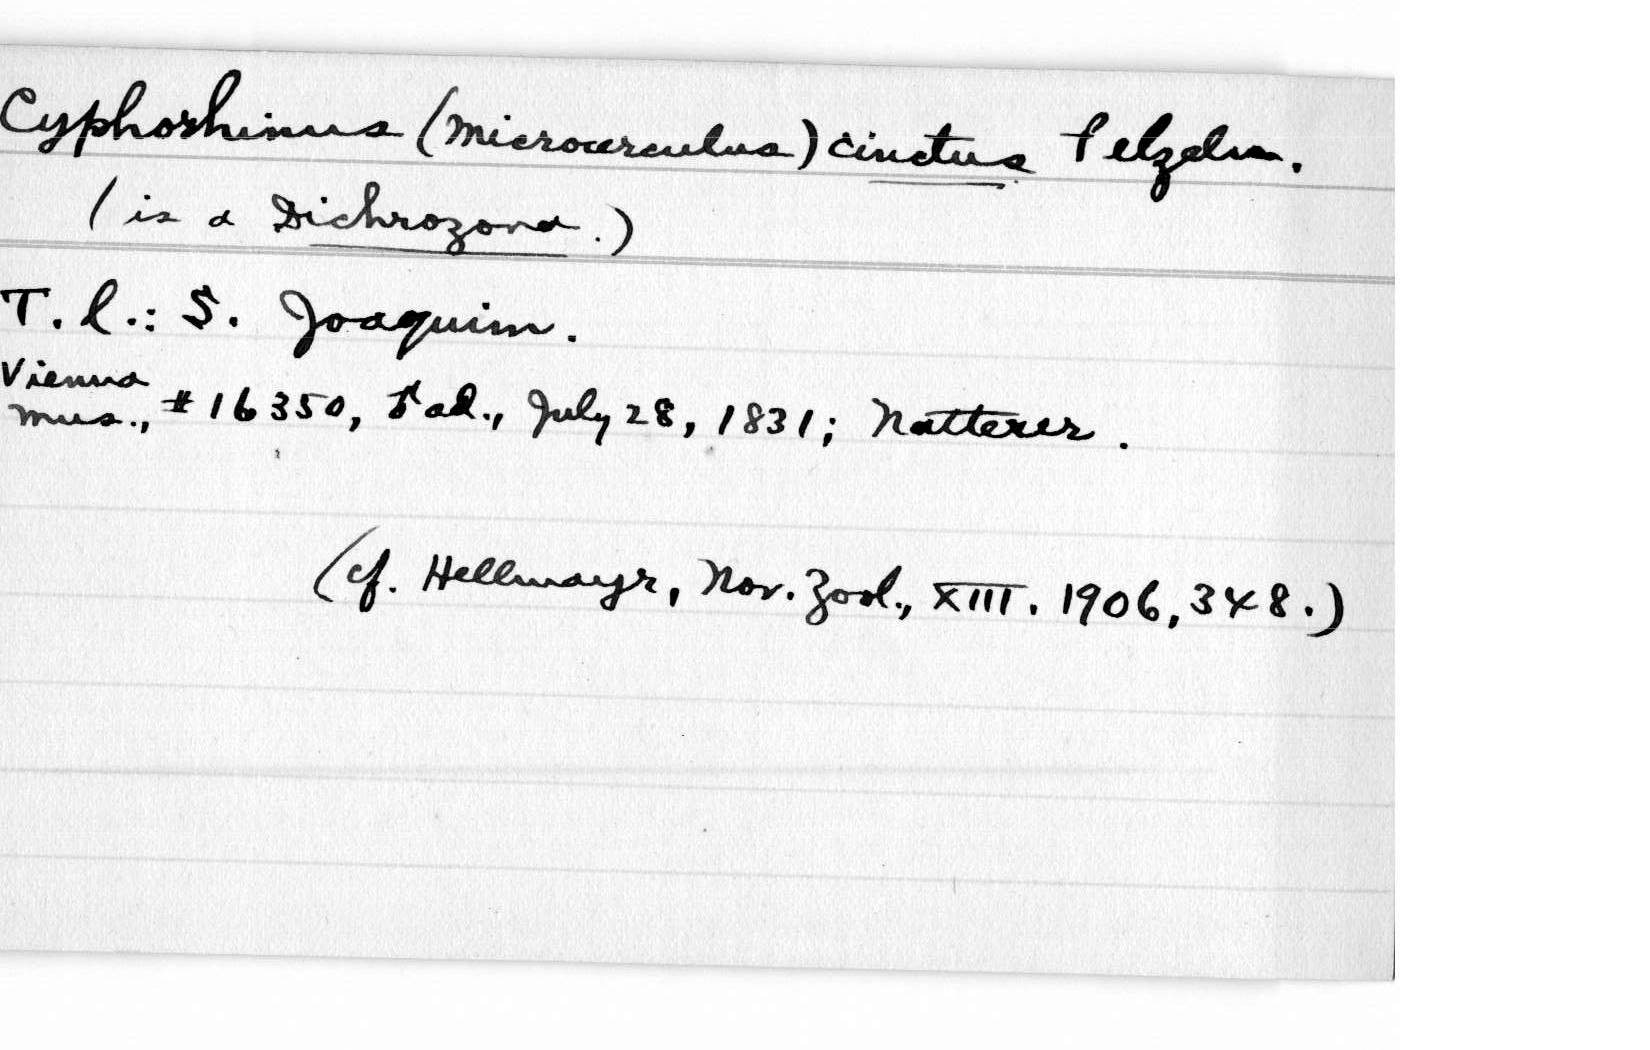 Cyphorhinus (Microcerculus) cinctus Pelzeln.
(is a Dichrozona.)
T. l.: S. Joaquim.
Vienna
Mus., # 16350, ♂ ad., July 28, 1831; Natterer.
(cf. Hellmayr, Nov. Zool., XIII. 1906, 348.)